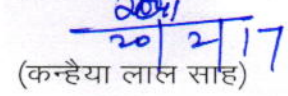 20/2/17
(कन्हैया लाल साह)